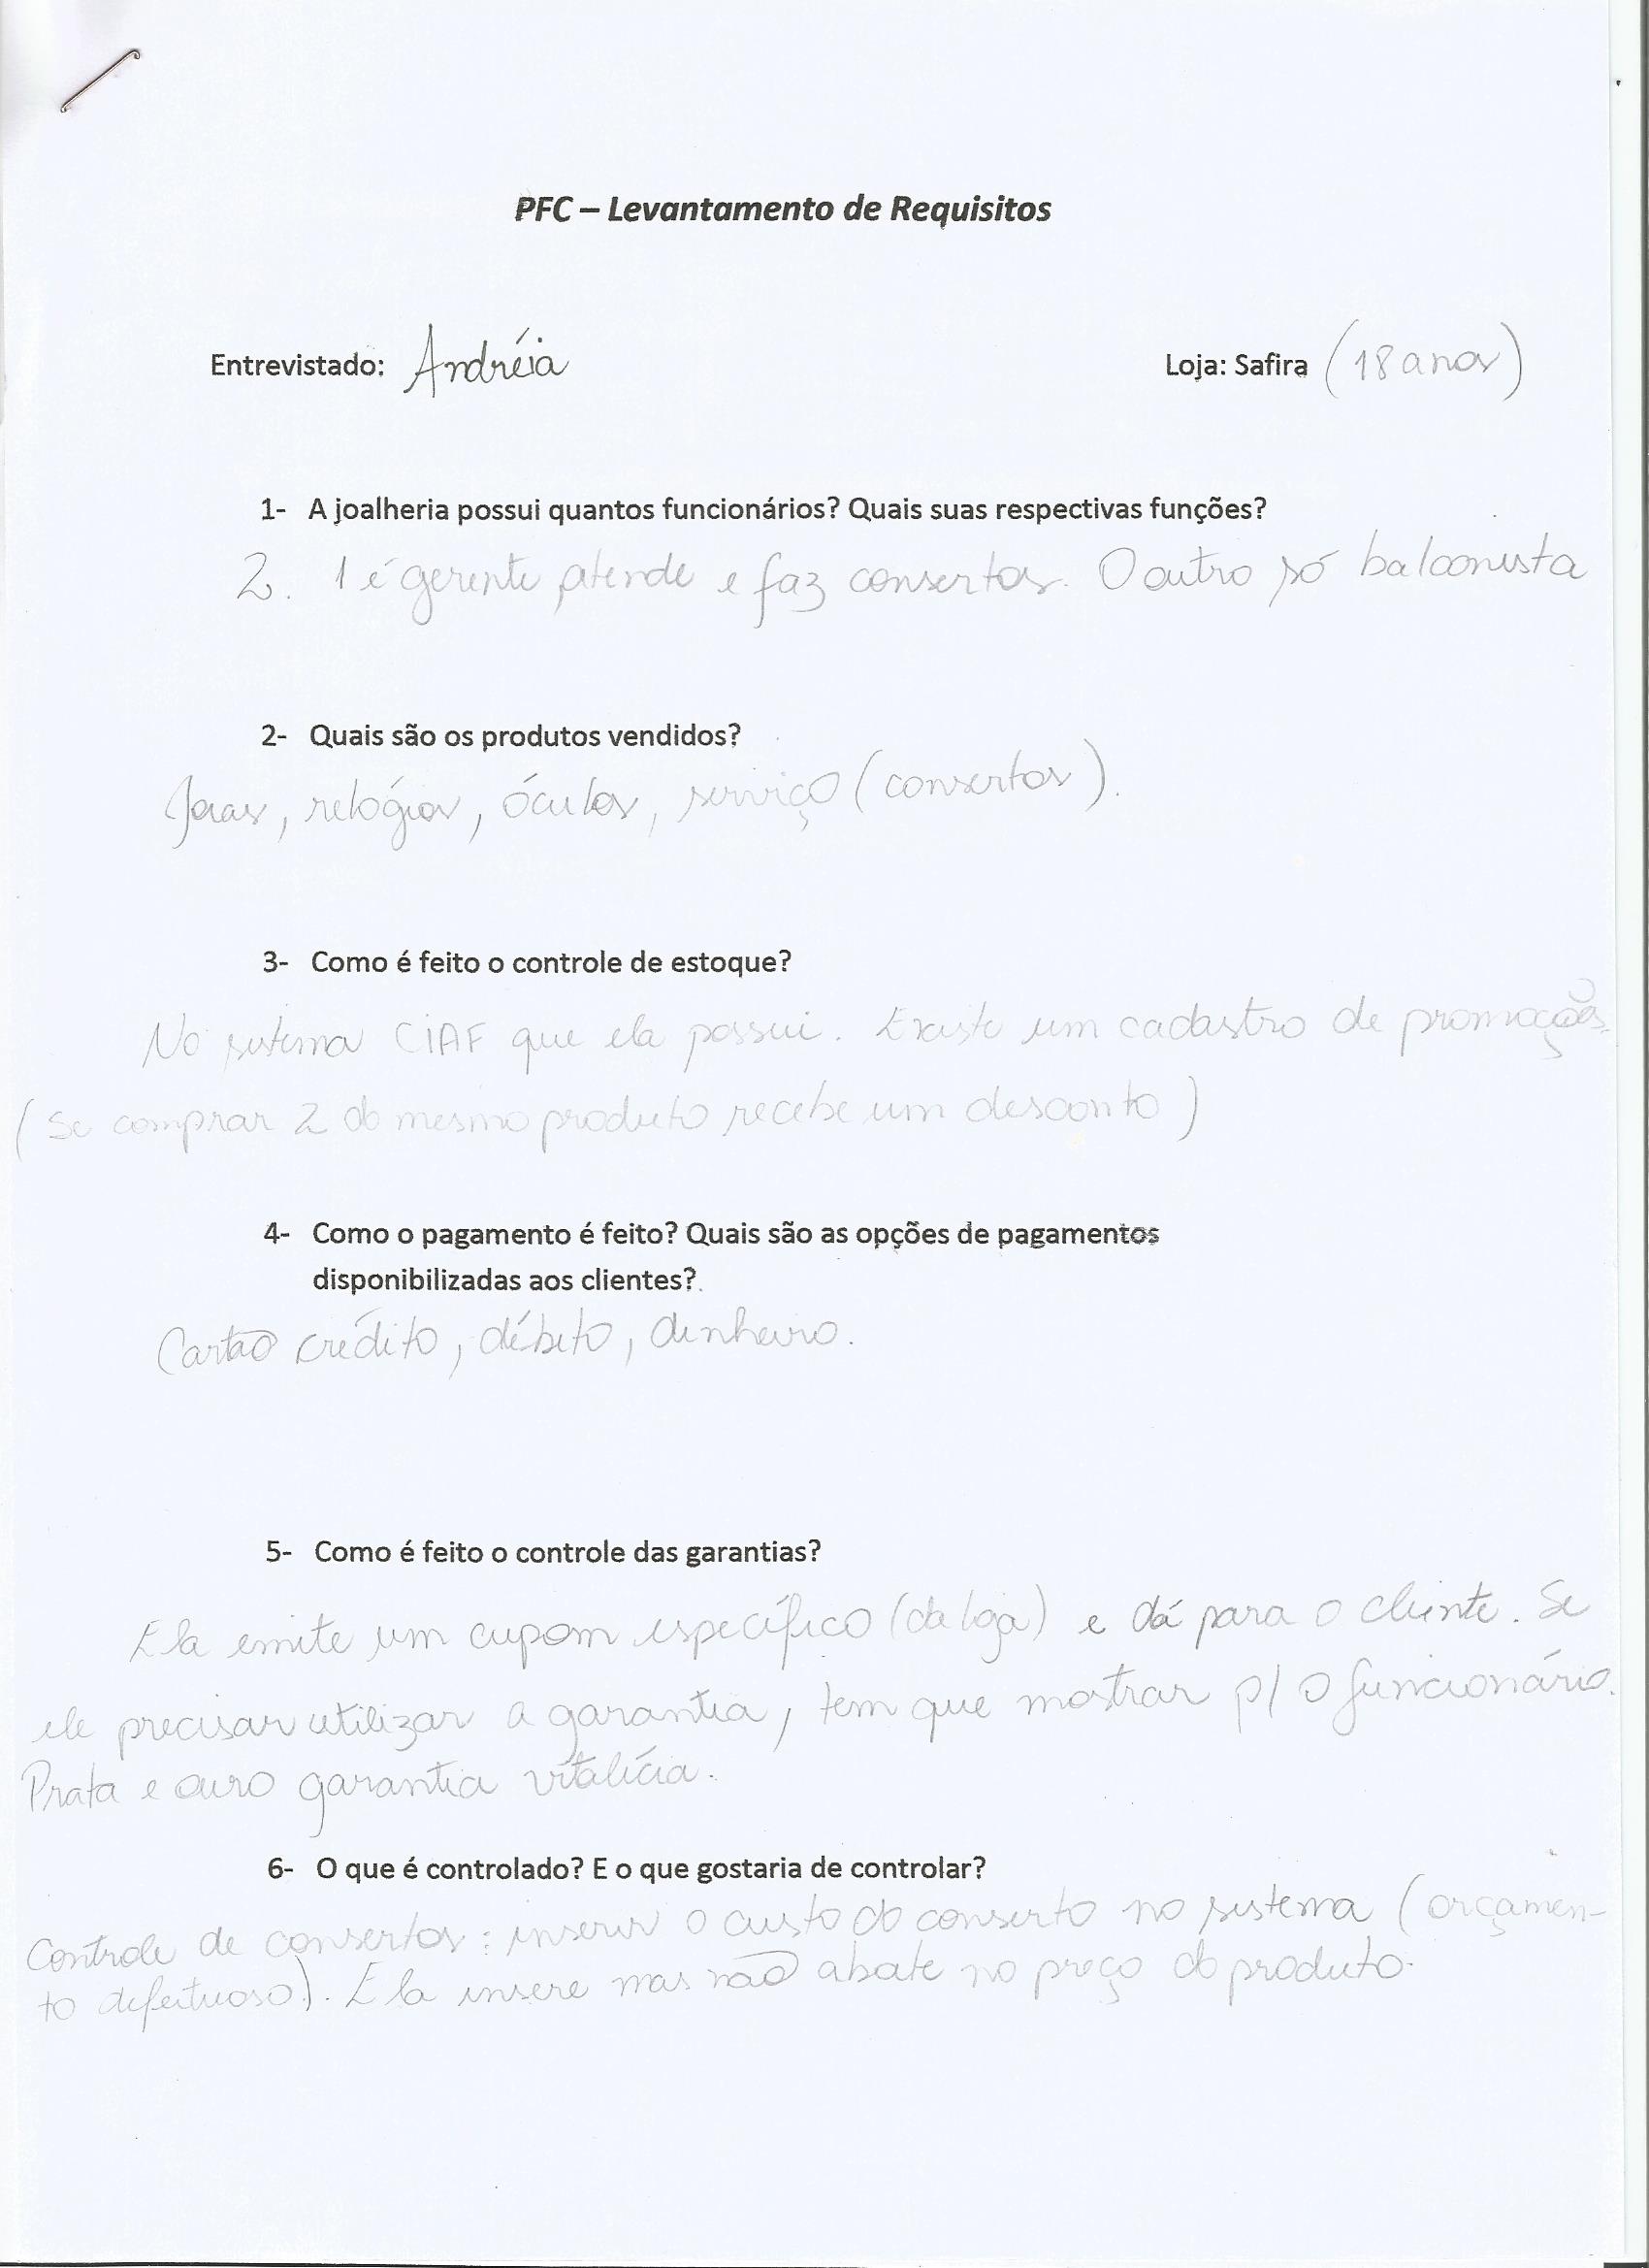 PFC – Levantamento de Requisitos
Entrevistado: Andréia Loja: Safira (18 anos)
1- A joalheria possui quantos funcionários? Quais suas respectivas funções?
2. 1 é gerente atende e faz consertos. O outro só balconista
2- Quais são os produtos vendidos?
Joias, relógios, óculos, serviço (consertos).
3- Como é feito o controle de estoque?
No sistema CIAF que ela possui. Existe um cadastro de promoções.
(Se comprar 2 do mesmo produto recebe um desconto)
4- Como o pagamento é feito? Quais são as opções de pagamentos
disponibilizadas aos clientes?
Cartão crédito, débito, dinheiro.
5- Como é feito o controle das garantias?
Ela emite um cupom específico (da loja) e dá para o cliente. Se
ele precisar utilizar a garantia, tem que mostrar p/ o funcionário.
Prata e ouro garantia vitalícia.
6- O que é controlado? E o que gostaria de controlar?
Controle de consertos: inserir o custo do conserto no sistema (orçamen-
to defeituoso). Ela insere mas não abate no preço do produto.